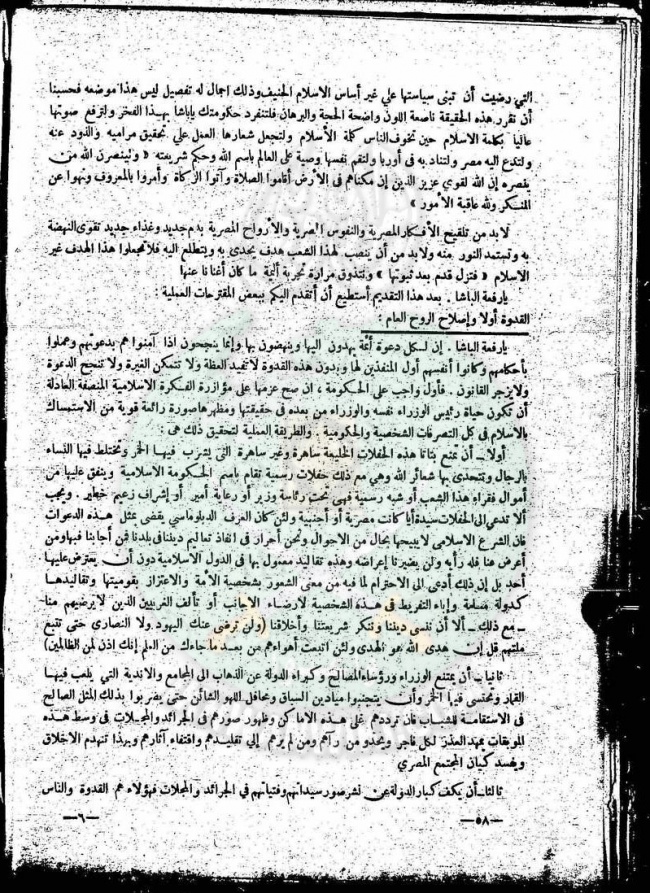 التي رضيت أن تبنى سياستها علي غير أساس الاسلام الحنيف وذلك اجمال له تفصيل ليس هذا موضعه فحسبنا
أن نقرر هذه الحقيقة ناصعة اللون واضحة المحجة والبرهان فلتنفرد حكومتك ياباشا بهذا الفخر ولترفع صوتها
عاليا بكلمة الاسلام حين تخوف الناس كلمة الأسلام ولتجعل شعارها العمل علي تحقيق مراميه والذود عنه
ولتدع اليه مصر ولتناد به فى أوربا ولتقم نفسها وصية على العالم باسم الله وحكم شريعته « ولينصرن الله من
ينصره إن الله لقوي عزيز الذين إن مكناهم فى الأرض أقاموا الصلاة وآتوا الزكاة وأمروا بالمعروف ونهوا عن
المنكر ولله عاقبة الأمور »
لابد من تلقيح الأفكار المصرية والنفوس المصرية والأرواح المصرية بدم جديد وغذاء جديد تقوى النهضة
به وتستمد النور منه ولابد من أن ينصب لهذا الشعب هدف يحدى به ويتطلع اليه فلا تجعلوا هذا الهدف غير
الاسلام « فتزل قدم بعد ثبوتها » وتتذوق مرارة تجربة أليمة ما كان أغنانا عنها
يارفعة الباشا . بعد هذا التقديم أستطيع أن أتقدم اليكم ببعض المقترحات العملية :
القدوة أولا وإصلاح الروح العام :
يارفعة الباشا . إن لكل دعوة أئمة يهدون اليها وينهضون بها وإنما ينجحون اذا آمنوا هم بدعوتهم وعملوا
بأحكامهم وكانوا أنفسهم أول المنفذين لها وبدون هذه القدوة لاتفيد العظة ولا تتمكن الغيرة ولا تنجح الدعوة
ولا يزجر القانون . فأول واجب على الحكومة ، ان صح عزمها على مؤازرة الفكرة الاسلامية المنصفة العادلة
أن تكون حياة رئيس الوزراء نفسه والوزراء من بعده فى حقيقتها ومظهرها صورة رائعة قوية من الاستمساك
بالاسلام فى كل التصرفات الشخصية والحكومية . والطريقة العملية لتحقيق ذلك هى :
أولا ــ أن تمنع بتاتا هذه الحفلات الخليعة ساهرة وغير ساهرة التى يشرب فيها الخمر وتختلط فيها النساء
بالرجال وتتحدى بها شعائر الله وهي مع ذلك حفلات رسمية تقام باسم الحكومة الاسلامية وينفق عليها من
أموال فقراء هذا الشعب أو شبه رسمية فهى تحت رئاسة وزير أو رعاية أمير أو إشراف زعيم خطير . ويجب
ألا تدعى الى الحفلات سيدة أيا كانت مصرية أو أجنبية ولئن كان العرف الدبلوماسي يقضى بمثل هذه الدعوات
فان الشرع الاسلامى لا يبيحها بحال من الاحوال ونحن أحرار فى انفاذ تعاليم ديننا فى بلدنا فمن أجابنا فبها ومن
أعرض هنا فله رأيه ولن يضيرنا إعراضه وهذه تقاليد معمول بها فى الدول الاسلامية دون أن يعترض عليها
أحد بل إن ذلك أدى الى الاحترام لما فيه من معنى الشعور بشخصية الأمة والاعتزاز بقوميتها وتقاليدها
كدولة مسلمة وإباء التفريط فى هذه الشخصية لارضاء الاجانب أو تألف الغربيين الذين لا يرضيهم منا
ــ مع ذلك ــ ألا أن ننسى ديننا وننكر شريعتنا وأخلاقنا (ولن ترضى عنك اليهود ولا النصارى حتى تتبع
ملتهم قل إن هدى الله هو الهدى ولئن اتبعت أهواءهم من بعد ما جاءك من العلم إنك اذن لمن الظالمين)
ثانيا ــ أن يمتنع الوزراء ورؤساء المصالح وكبراء الدولة عن الذهاب الى المجامع والاندية التي يلعب فيها
القمار وتحتسى فيها الخمر وأن يتجنبوا ميادين السباق ومحافل اللهو الشائن حتى يضربوا بذلك المثل الصالح
فى الاستقامة للشباب فان ترددهم على هذه الاماكن وظهور صورهم فى الجرائد والمجلات فى وسط هذه
الموبقات يمهد العذر لكل فاجر ويحدو من رآهم ومن لم يرهم إلي تقليدهم واقتفاء آثارهم وبهذا تنهدم الاخلاق
ويفسد كيان المجتمع المصري
ثالثا ــ أن يكف كبار الدولة عن نشر صور سيداتهم وفتياتهم في الجرائد والمجلات فهؤلاء هم القدوة والناس
—٥٨— —٦—